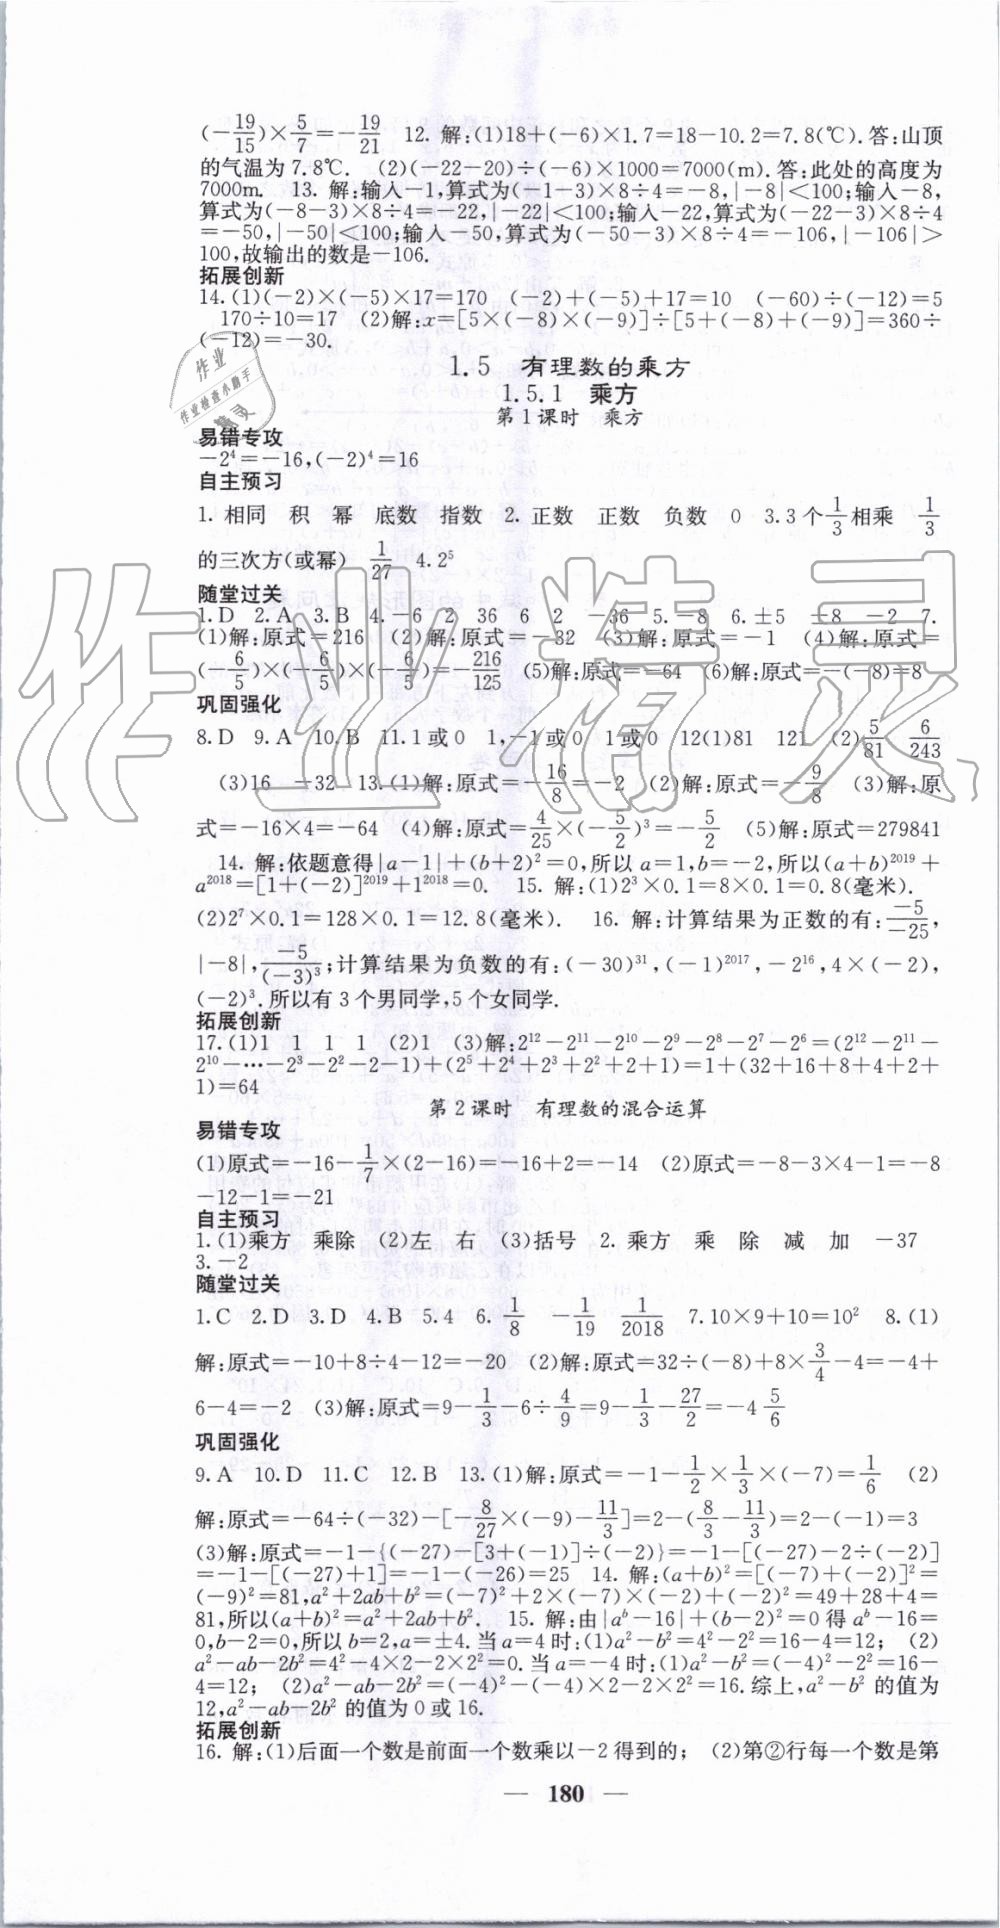 (-19/15)×5/7=-19/21  12. 解:(1)18+(-6)×1.7=18-10.2=7.8(℃).答:山顶
的气温为7.8℃.  (2)(-22-20)÷(-6)×1000=7000(m).答:此处的高度为
7000m.  13. 解:输入-1,算式为(-1-3)×8÷4=-8,|-8|<100;输入-8,
算式为(-8-3)×8÷4=-22,|-22|<100;输入-22,算式为(-22-3)×8÷4
=-50,|-50|<100;输入-50,算式为(-50-3)×8÷4=-106,|-106|>
100,故输出的数是-106.
拓展创新
14.(1)(-2)×(-5)×17=170  (-2)+(-5)+17=10  (-60)÷(-12)=5
170÷10=17  (2)解:x=[5×(-8)×(-9)]÷[5+(-8)+(-9)]=360÷
(-12)=-30.
1.5 有理数的乘方
1.5.1 乘方
第1课时 乘方
易错专攻
-2⁴=-16,(-2)⁴=16
自主预习
1. 相同 积 幂 底数 指数  2. 正数 正数 负数 0  3.3个1/3相乘  1/3
的三次方(或幂)  1/27  4.2⁵
随堂过关
1.D  2.A  3.B  4.-6  2  36  6  2  -36  5.-8  6.±5  +8  -2  7.
(1)解:原式=216  (2)解:原式=-32  (3)解:原式=-1  (4)解:原式=
(-6/5)×(-6/5)×(-6/5)=-216/125  (5)解:原式=-64  (6)解:原式=-(-8)=8
巩固强化
8.D  9.A  10.B  11.1或0  1,-1或0  1或0  12(1)81  121  (2)5/81  6/243
(3)16  -32  13.(1)解:原式=-16/8=-2  (2)解:原式=-9/8  (3)解:原
式=-16×4=-64  (4)解:原式=4/25×(-5/2)³=-5/2  (5)解:原式=279841
14. 解:依题意得|a-1|+(b+2)²=0,所以a=1,b=-2,所以(a+b)²⁰¹⁹+
a²⁰¹⁸=[1+(-2)]²⁰¹⁹+1²⁰¹⁸=0.  15. 解:(1)2³×0.1=8×0.1=0.8(毫米).
(2)2⁷×0.1=128×0.1=12.8(毫米).  16. 解:计算结果为正数的有:-5/-25,
|-8|,-5/(-3)³;计算结果为负数的有:(-30)³¹,(-1)²⁰¹⁷,-2¹⁶,4×(-2),
(-2)³.所以有3个男同学,5个女同学.
拓展创新
17.(1)1  1  1  1  (2)1  (3)解:2¹²-2¹¹-2¹⁰-2⁹-2⁸-2⁷-2⁶=(2¹²-2¹¹-
2¹⁰-…-2³-2²-2-1)+(2⁵+2⁴+2³+2²+2+1)=1+(32+16+8+4+2+
1)=64
第2课时 有理数的混合运算
易错专攻
(1)原式=-16-1/7×(2-16)=-16+2=-14  (2)原式=-8-3×4-1=-8
-12-1=-21
自主预习
1.(1)乘方 乘除  (2)左 右  (3)括号  2. 乘方 乘 除 减 加 -37
3.-2
随堂过关
1.C  2.D  3.D  4.B  5.4  6.1/8  -1/19  1/2018  7.10×9+10=10²  8.(1)
解:原式=-10+8÷4-12=-20  (2)解:原式=32÷(-8)+8×3/4-4=-4+
6-4=-2  (3)解:原式=9-1/3-6÷4/9=9-1/3-27/2=-4 5/6
巩固强化
9.A  10.D  11.C  12.B  13.(1)解:原式=-1-1/2×1/3×(-7)=1/6  (2)
解:原式=-64÷(-32)-[-8/27×(-9)-11/3]=2-(8/3-11/3)=2-(-1)=3
(3)解:原式=-1-{(-27)-[3+(-1)]÷(-2)}=-1-[(-27)-2÷(-2)]
=-1-[(-27)+1]=-1-(-26)=25  14. 解:(a+b)²=[(-7)+(-2)]²=
(-9)²=81,a²+2ab+b²=(-7)²+2×(-7)×(-2)+(-2)²=49+28+4=
81,所以(a+b)²=a²+2ab+b².  15. 解:由|aᵇ-16|+(b-2)²=0得aᵇ-16=
0,b-2=0,所以b=2,a=±4.当a=4时:(1)a²-b²=4²-2²=16-4=12;  (2)
a²-ab-2b²=4²-4×2-2×2²=0.当a=-4时:(1)a²-b²=(-4)²-2²=16-
4=12;  (2)a²-ab-2b²=(-4)²-(-4)×2-2×2²=16.综上,a²-b²的值为
12,a²-ab-2b²的值为0或16.
拓展创新
16. 解:(1)后面一个数是前面一个数乘以-2得到的;  (2)第②行每一个数是第
— 180 —
作业
作业检查小助手
作业精灵